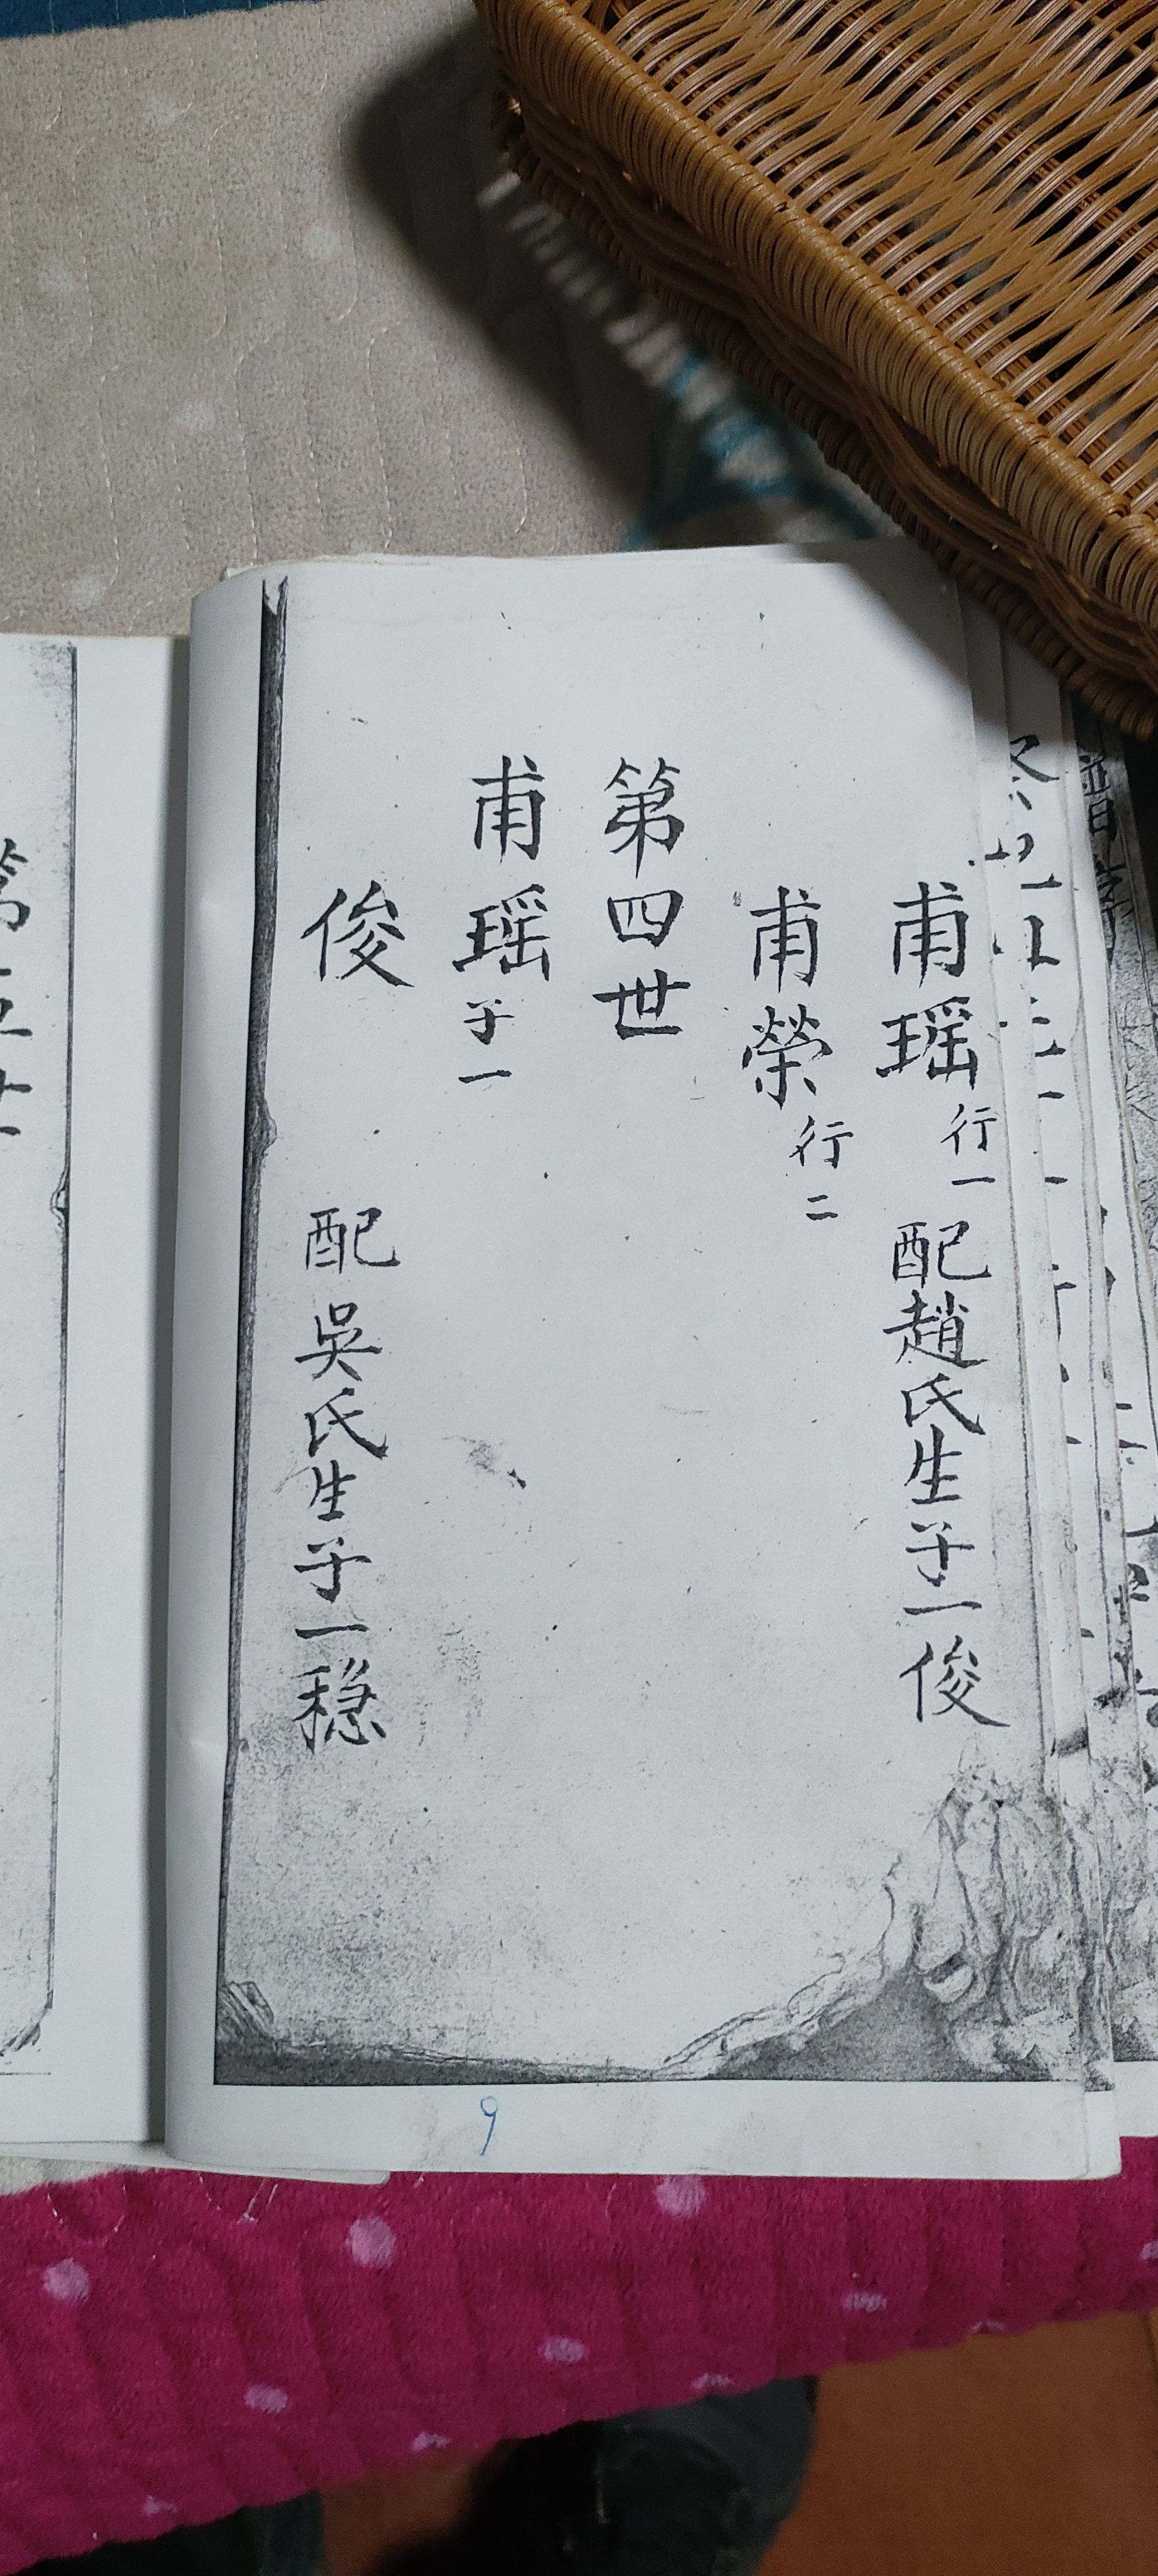 甫瑶行一配趙氏生子一俊
甫榮行二
第四世
甫瑶子一
俊 配吳氏生子一穏
9